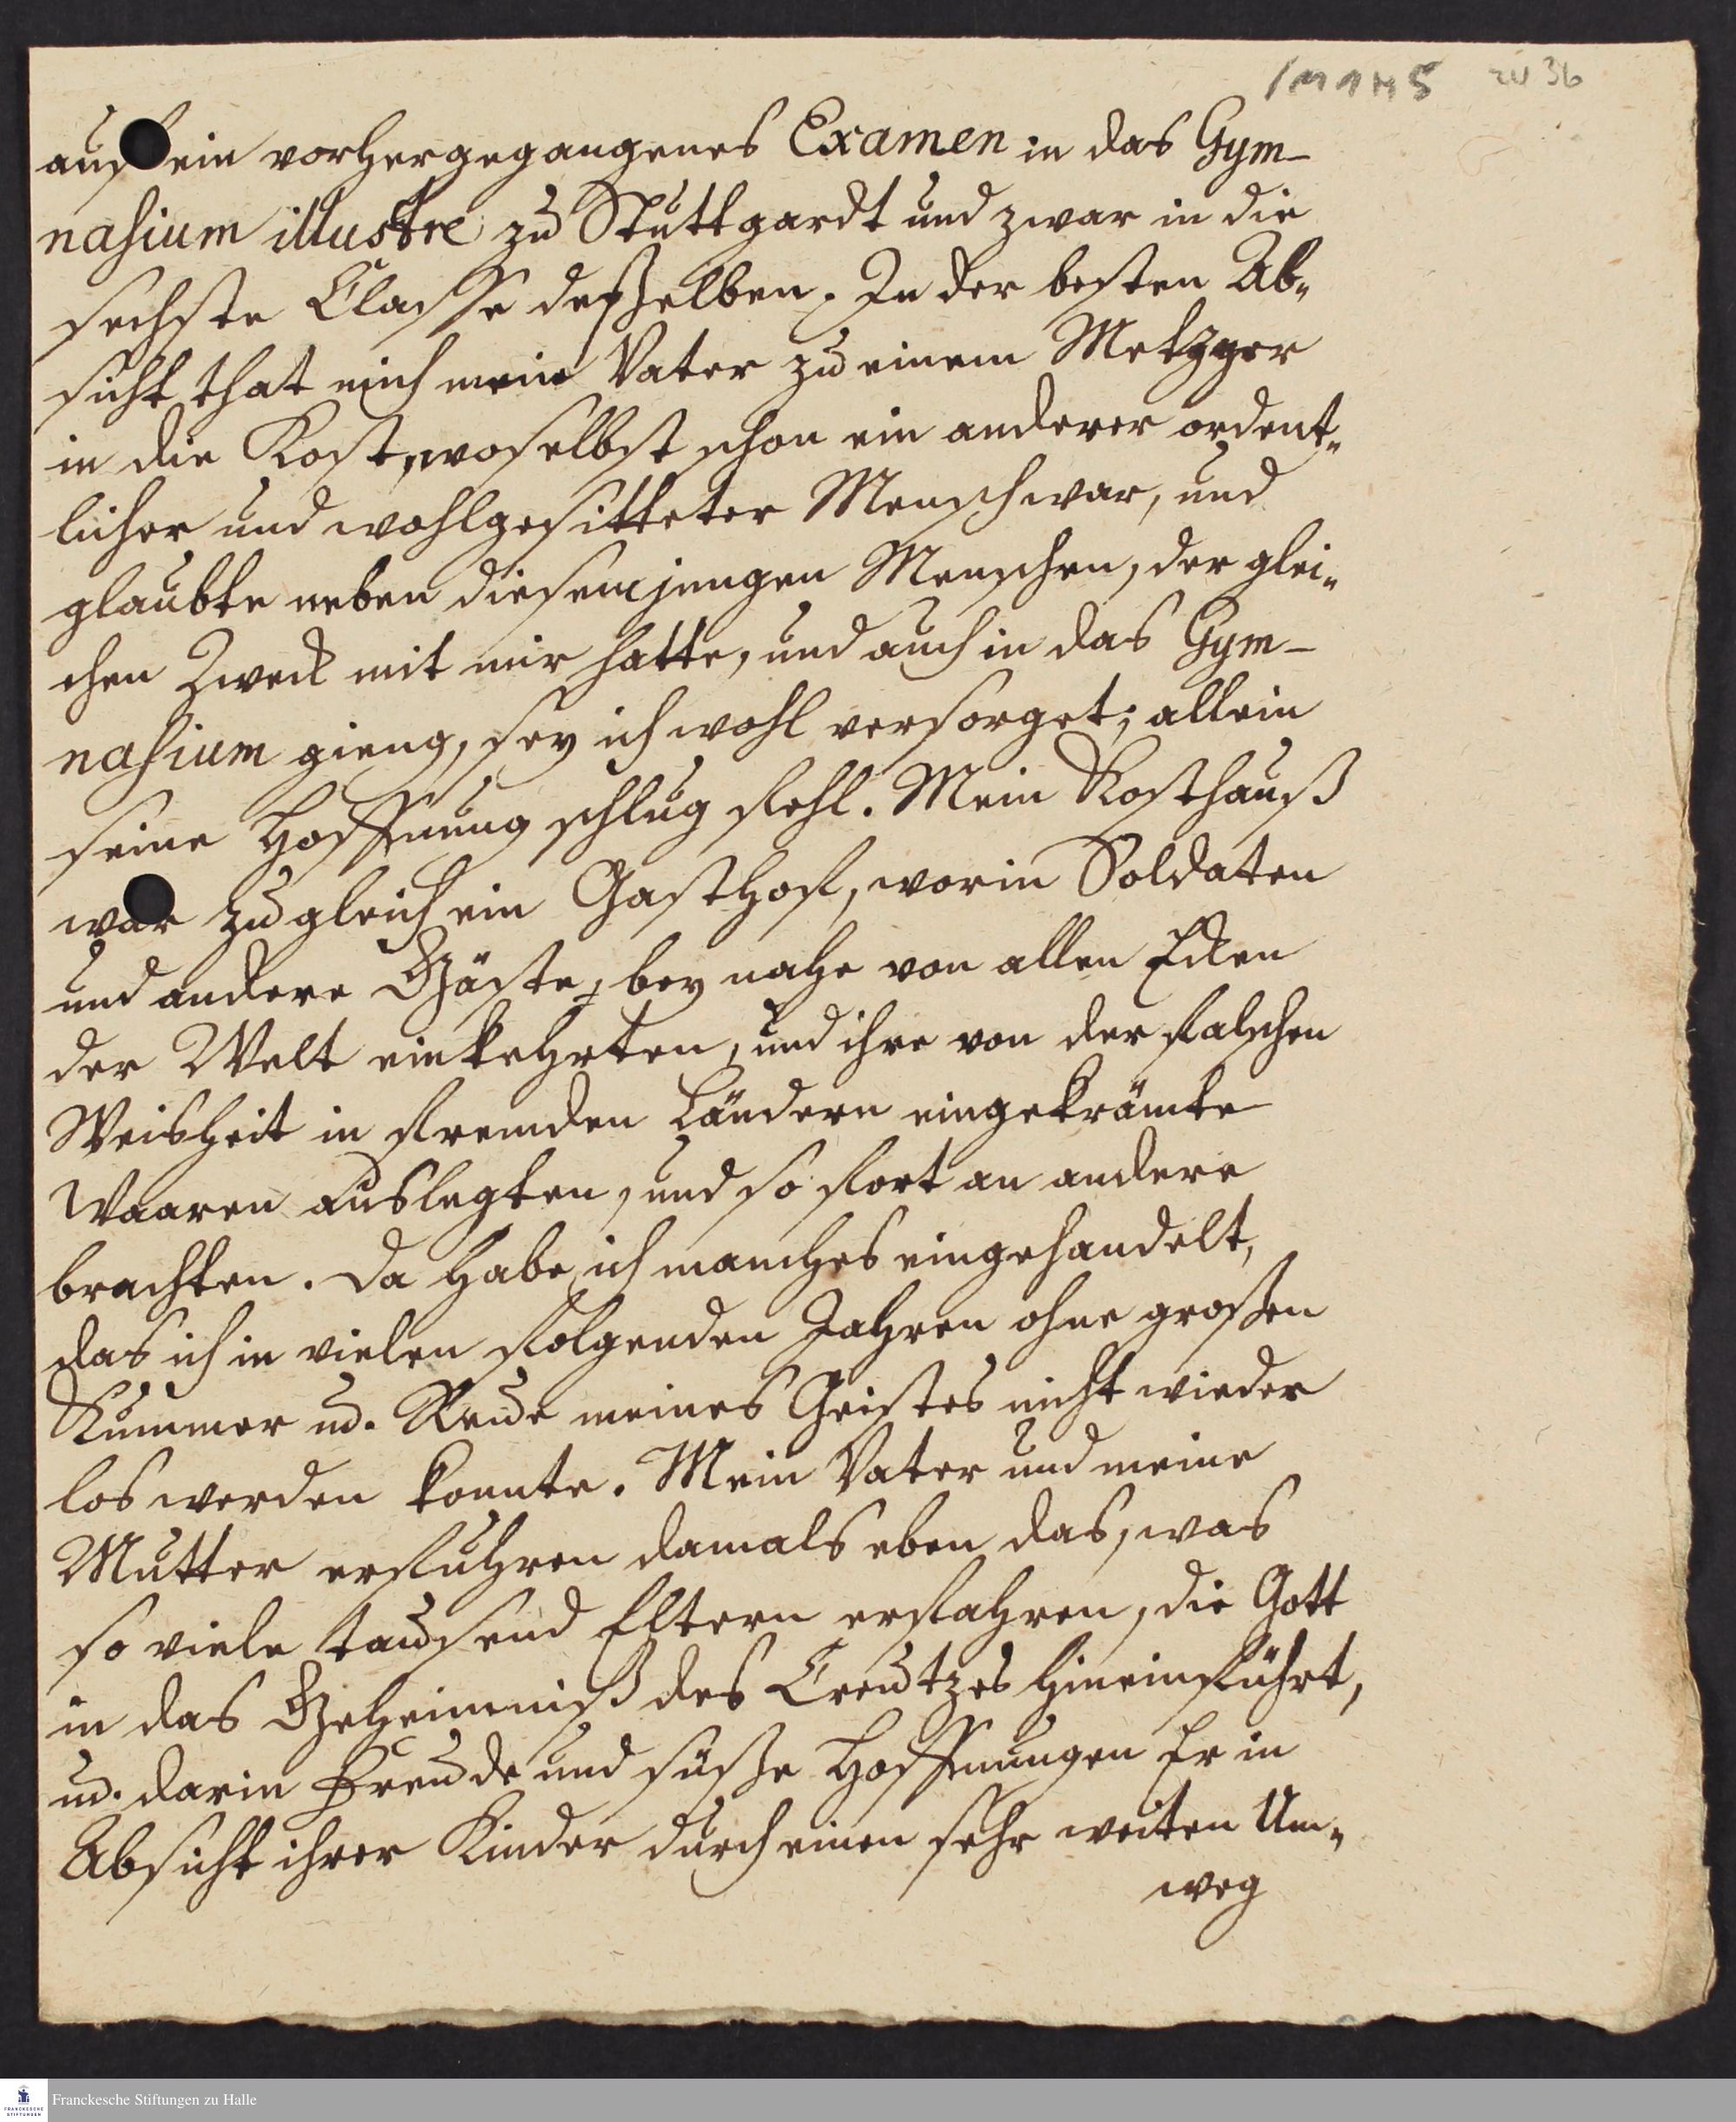 1M1M5 zu 36
auf ein vorhergegangenes Examen in das Gym-
nasium illustre zu Stuttgardt und zwar in die
sechste Classe desselben. In der besten Ab„
sicht that mich mein Vater zu einem Metzger
in die Kost, woselbst schon ein anderer ordent„
licher und wohlgesitteter Mensch war, und
glaubte neben diesem jungen Menschen, der glei„
chen Zweck mit mir hatte, und auch in das Gym-
nasium gieng, sey ich wohl versorget; allein
seine Hoffnung schlug fehl. Mein Kosthauß
war zugleich ein Gasthof, worin Soldaten
und andere Gäste, bey nahe von allen Ecken
der Welt einkehrten, und ihre von der falschen
Weisheit in fremden Ländern eingekrämte
Waaren auslegten, und so fort an andere
brachten. Da habe ich manches eingehandelt,
das ich in vielen folgenden Jahren ohne großen
Kummer ud. Reue meines Geistes nicht wieder
los werden konnte. Mein Vater und meine
Mutter erfuhren damals eben das, was
so viele tausend Eltern erfahren, die Gott
in das Geheimniß des Creutzes hineinführt,
ud. darin Freude und süße Hoffnungen Er in
Absicht ihrer Kinder durch einen sehr weiten Um„
weg
FRANCKESCHE STIFTUNGEN
Franckesche Stiftungen zu Halle